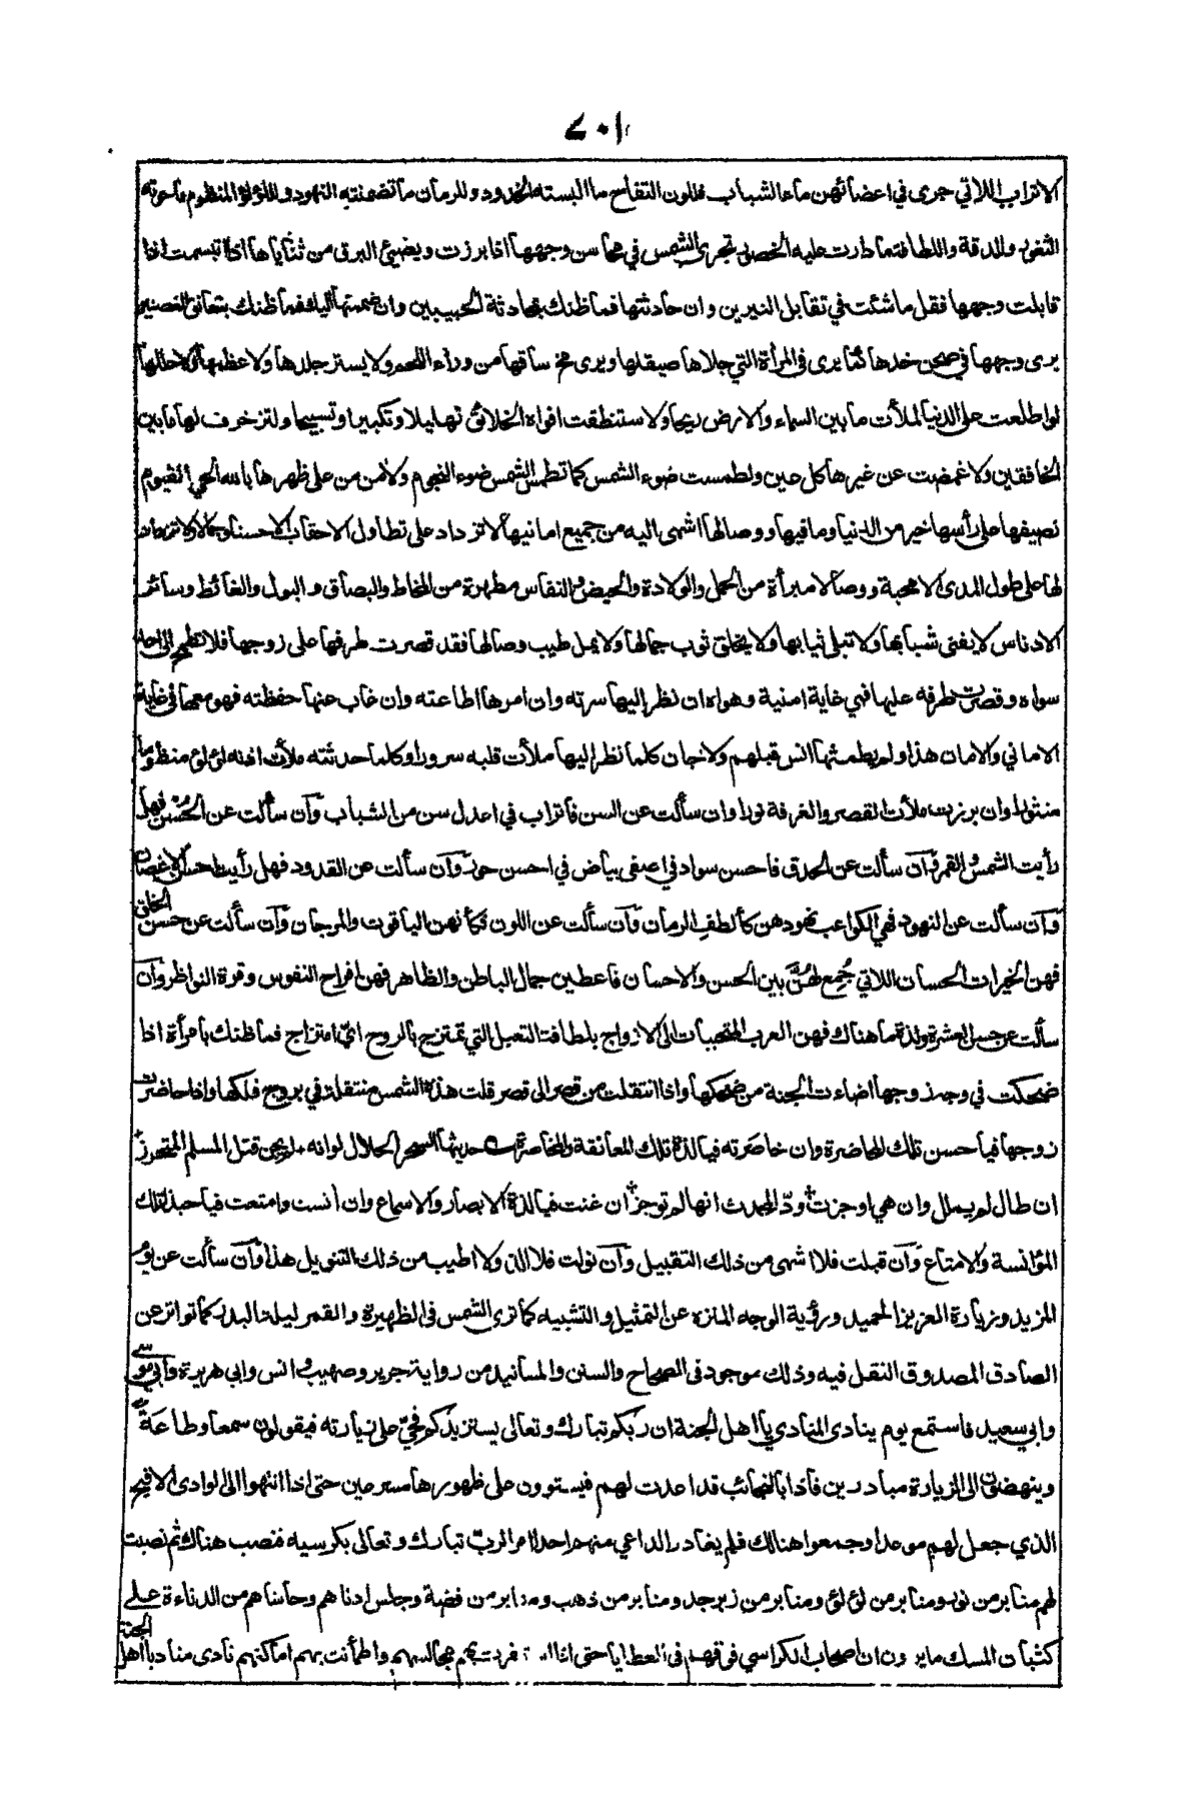 ٧٠١
الاتراب اللاتي جرى في اعضائهن ماء الشباب فللون التفاح ما البسته الخدود وللرمان ما تضمنته النهود وللؤلؤ المنظوم ما حوته
الثغور وللدقة واللطافة ما دارت عليه الخصور تجرى الشمس في محاسن وجهها اذا برزت ويضيئ البرق من ثناياها اذا تبسمت اذا
قابلت وجهها فقل ما شئت في تقابل النيرين وان حادثتها فما ظنك بمحادثة الحبيبين وان ضممتها اليك فما ظنك بتعانق الغصنين
يرى وجهها في صحن خدها كما يرى في المرأة التي جلاها صيقلها ويرى مخ ساقها من ورآء اللحم ولا يستر جلدها ولا عظمها ولا حللها
لو اطلعت على الدنيا لملأت ما بين السماء والارض ريحا ولاستنطقت افواه الخلائق تهليلا وتكبيرا وتسبيحا ولتزخرف لها ما بين
الخافقين ولاغمضت عن غيرها كل حين ولطمست ضوء الشمس كما تطمس الشمس ضوء النجوم ولأمن من على ظهرها بالله الحي القيوم
نصيفها على رأسها خير من الدنيا وما فيها ووصالها اشهى اليه من جميع امانيها لا تزداد على تطاول الاحقاب الا حسنا وجمالا ولا تزداد
لها على طول المدى الا محبة ووصالا مبرأة من الحمل والولادة والحيض والنفاس مطهرة من المخاط والبصاق والبول والغائط وسائر
الادناس لا يفنى شبابها ولا تبلى ثيابها ولا يخلق ثوب جمالها ولا يمل طيب وصالها فقد قصرت طرفها على زوجها فلا تطمح الى احد
سواه وقصرت طرفه عليها فهي غاية امنية وهواه ان نظر اليها سرته وان امرها اطاعته وان غاب عنها حفظته فهو معها في غاية
الاماني والامان هذا ولم يطمثها انس قبلهم ولا جان كلما نظر اليها ملأت قلبه سرورا وكلما حدثته ملأت اذنه لؤلؤ منظوما
منثورا وان برزت ملأت القصر والغرفة نورا وان سألت عن السن فاتراب في اعدل سن من الشباب وآن سألت عن الحسن فهل
رأيت الشمس والقمر وآن سألت عن الحدق فاحسن سواد في اصفى بياض في احسن حور وآن سألت عن القدود فهل رأيت احسن الاغصان
وآن سألت عن النهود فهي الكواعب نهودهن كألطف الرمان وآن سألت عن اللون فكأنهن الياقوت والمرجان وآن سألت عن حسن الخلق
فهن الخيرات الحسان اللاتي جُمِع لهُنَّ بين الحسن والاحسان فاعطين جمال الباطن والظاهر فهن افراح النفوس وقرة النواظر وآن
سألت عن حسن العشرة ولذة ما هناك فهن العرب المتحببات الى الازواج بلطافت التبعل التي تمتزج بالروح اي امتزاج فما ظنك بامرأة اذا
ضحكت في وجه زوجها اضاءت الجنة من ضحكها واذا انتقلت من قصر الى قصر قلت هذه الشمس منتقلة في بروج فلكها واذا حاضرت
زوجها فيا حسن تلك المحاضرة وان خاصَرته فيا لذة تلك المعانقة والمخاصرة وحديثها السحر الحلال لو انه لم يجن قتل المسلم المتحرز
ان طال لم يملل وان هي اوجزت ودّ المحدث انها لم توجز ان غنت فيا لذة الابصار والاسماع وان أنست وامتعت فيا حبذا تلك
المؤانسة والامتاع وآن قبلت فلا اشهى من ذلك التقبيل وآن نولت فلا الذ ولا اطيب من ذلك التنويل هذا وآن سألت عن يوم
المزيد وزيارة العزيز الحميد ورؤية الوجه المنزه عن التمثيل والتشبيه كما ترى الشمس في الظهيرة والقمر ليلة البدر كما تواتر عن
الصادق المصدوق النقل فيه وذلك موجود في الصحاح والسنن والمسانيد من رواية جرير وصهيب وانس وابي هريرة وابي موسى
وابي سعيد فاستمع يوم ينادى المنادي يا اهل الجنة ان ربكم تبارك وتعالى يستزيركم فحيّ على زيارته فيقولون سمعا وطاعةً
وينهضون الى الزيارة مبادرين فاذا بالنجائب قد اعدت لهم فيستوون على ظهورها مسرعين حتى اذا انتهوا الى الوادى الافيح
الذي جعل لهم موعدا وجمعوا هنالك فلم يغادر الداعي منهم احدا امر الربّ تبارك وتعالى بكرسيه فنصب هناك ثم نصبت
لهم منابر من نور ومنابر من لؤلؤ ومنابر من زبرجد ومنابر من ذهب ومنابر من فضة وجلس ادناهم وحاشاهم من الدناءة على
كثبان المسك ما يرون ان اصحاب الكراسي فوقهم في العطايا حتى اذا استقرت بهم مجالسهم واطمأنت بهم اماكنهم نادى مناد يا اهل الجنة